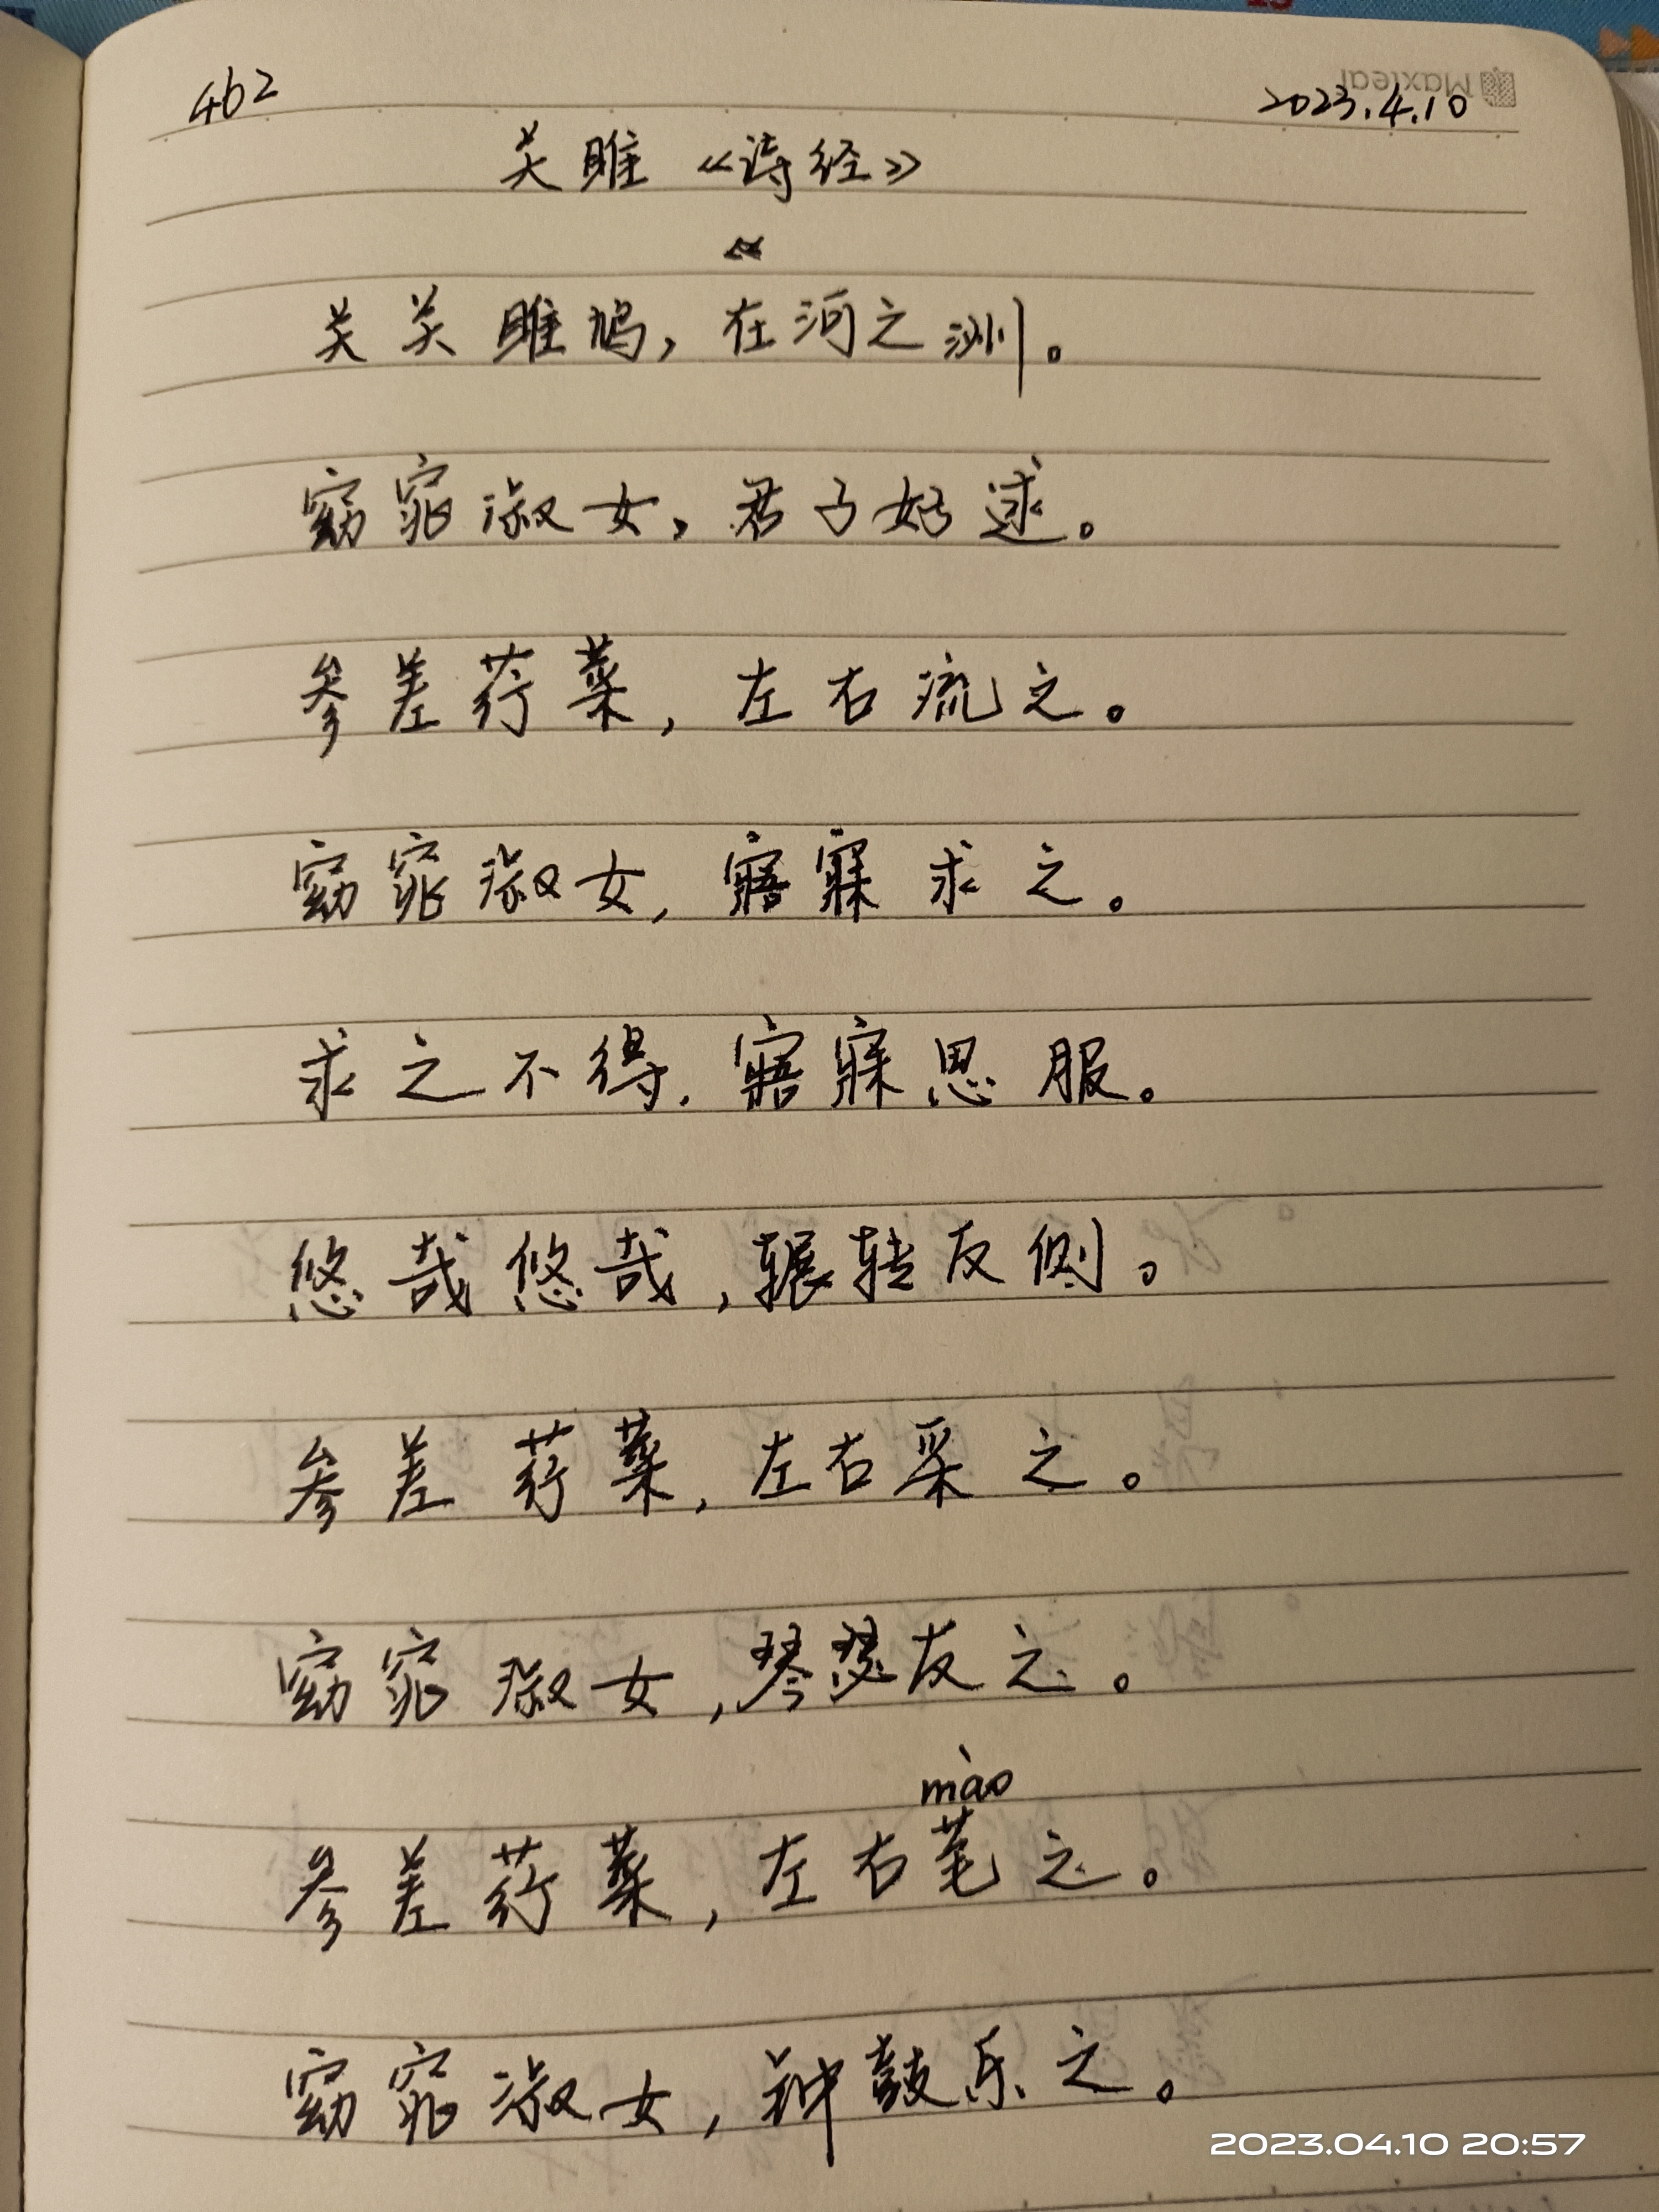 462
2023.4.10
Maxleaf
关雎《诗经》
关关雎鸠，在河之洲。
窈窕淑女，君子好逑。
参差荇菜，左右流之。
窈窕淑女，寤寐求之。
求之不得，寤寐思服。
悠哉悠哉，辗转反侧。
参差荇菜，左右采之。
窈窕淑女，琴瑟友之。
mào
参差荇菜，左右芼之。
窈窕淑女，钟鼓乐之。
2023.04.10 20:57